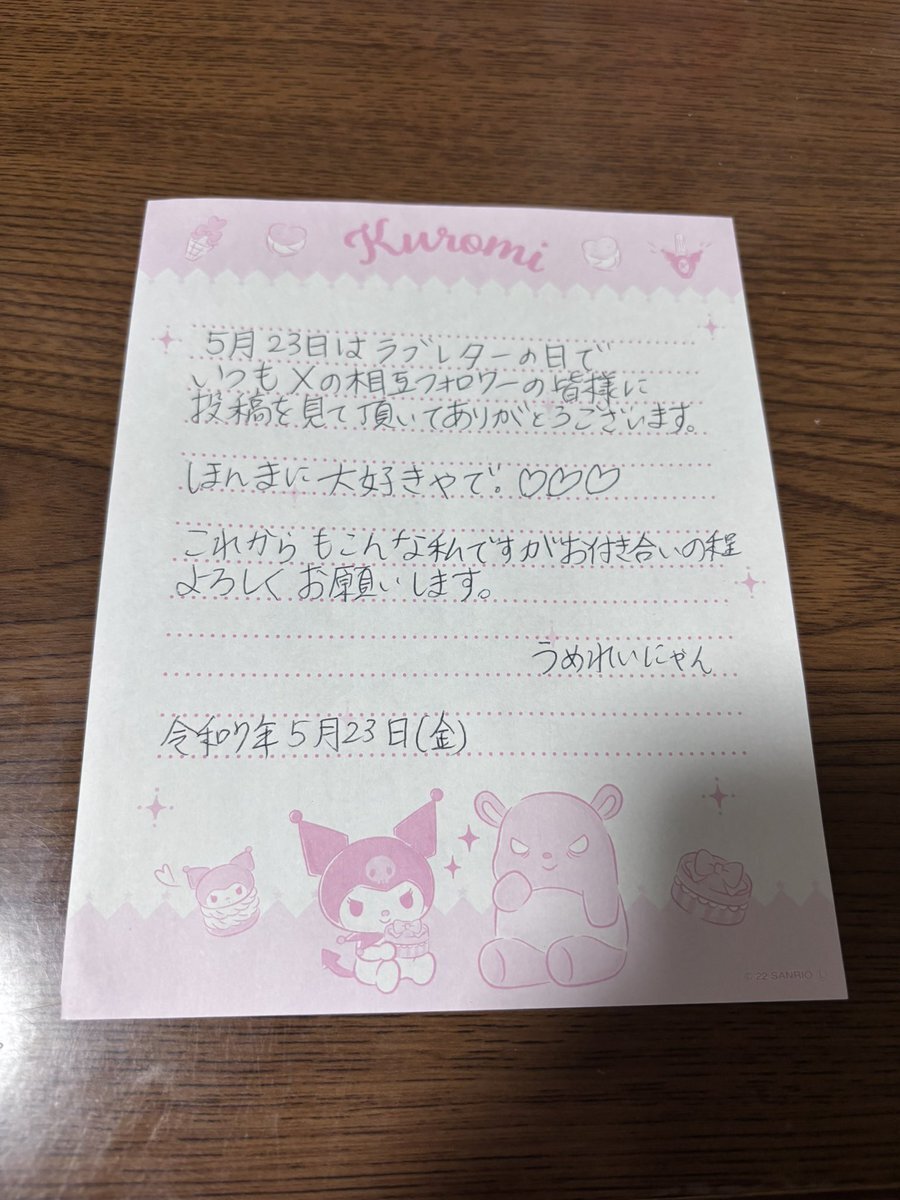 Kuromi
5月23日はラブレターの日で
いつもXの相互フォロワーの皆様に
投稿を見て頂いてありがとうございます。
ほんまに大好きやで。♡♡♡
これからもこんな私ですがお付き合いの程
よろしくお願いします。
うめれいにゃん
令和7年5月23日(金)
© '22 SANRIO Ⓛ